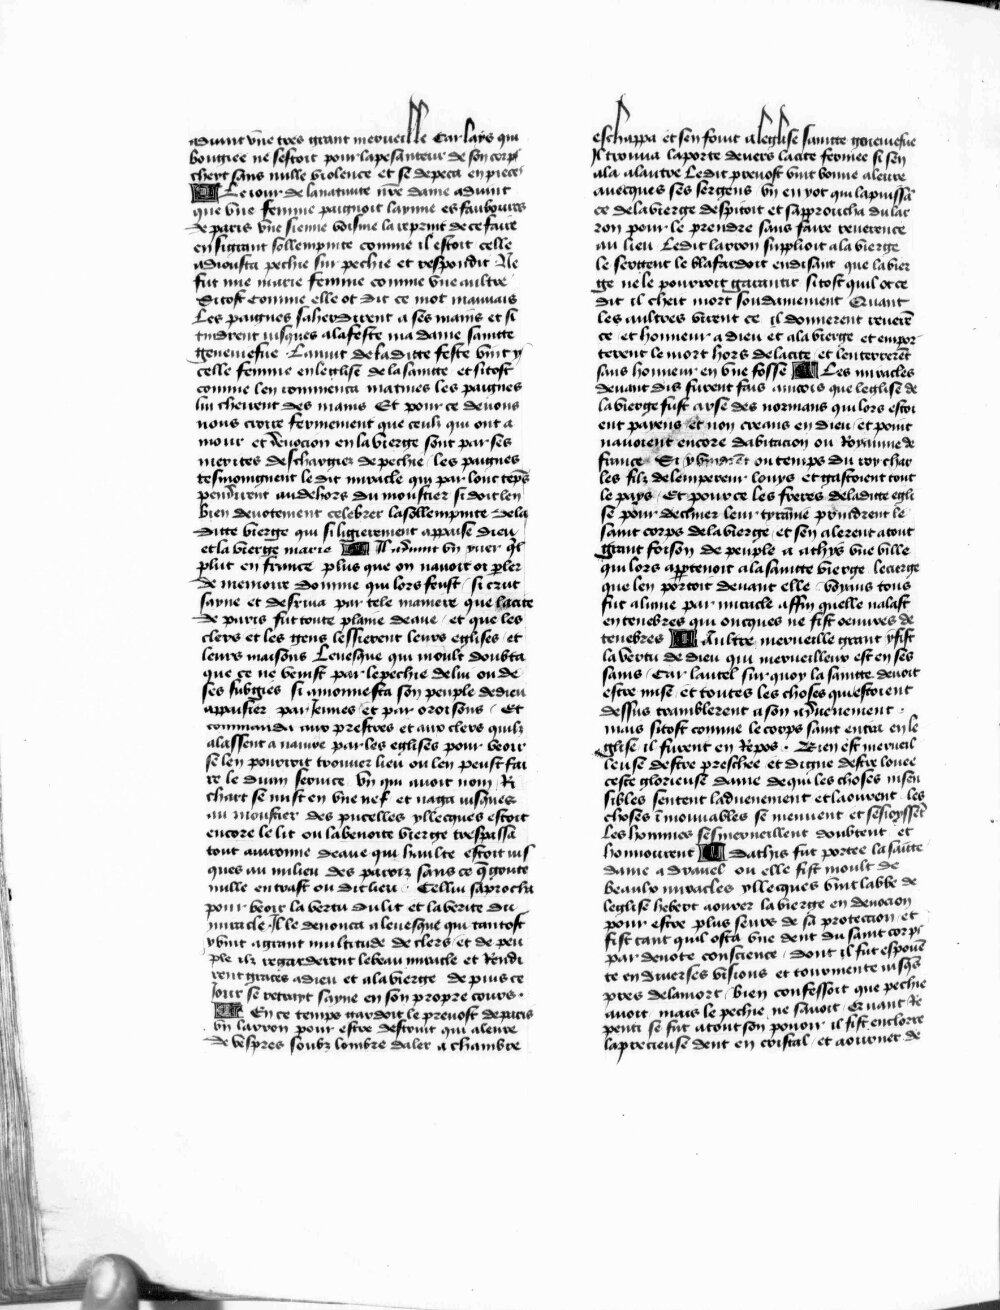 aduint vne tres grant merueille Car lays qui
bougree ne sestoit pour lapesanteur de son corps
cheyt sans nulle violence et se depeca en pieces
Le iour de lanatiuite nr̄e dame aduint
que vne femme paignoit layme es faubours
de paris vne sienne voisine la reprint de ce faire
en sigrant sollempnite comme il estoit celle
adiousta pechie sur pechie et respondit Ne
fut mie marie femme comme vne aultre
Si tost comme elle ot dit ce mot mauuais
Les paignes saherdirent a ses mains et si
tindrent iusques alafeste ma dame saincte
geneuiefue Lanuit de ladicte feste vint y
celle femme en leglise de la saincte et si tost
comme len commenca matines les paignes
lui cheirent des mains Et pour ce deuons
nous croire fermement que ceulx qui ont a
mour et deuocion en la vierge sont par ses
merites deschargiez de pechie les paignes
tesmoingnent le dit miracle qui par lonc teps̄
pendirent au dehors du moustier si doit len
bien deuotement celebrer la sollempnite de la
dicte vierge qui si ligierement appaise dieu
et la vierge marie Il aduint vn yuer ql̄
plut en france plus que on nauoit oy pler
de memoire domme qui lors feust si crut
sayne et desriua par tele maniere que lacite
de paris fut toute plaine deaue et que les
clers et les gens lessierent leurs eglises et
leurs maisons Leuesque qui moult doubta
que ce ne venist par lepechie delui ou de
ses subgies si amonnesta son peuple de dieu
appaisier par Jeunes et par oroisons Et
commanda aux prestres et aux clers quilz
alassent a nauire par les eglises pour veoir
se len pourroit trouuer lieu ou len peust fai
re le diuin seruice Vn qui auoit nom Ri
chart se mist en vne nef et naga iusques
au moustier des pucelles yllecques estoit
encore le lit ou la benoite vierge trespassa
tout auironne deaue qui haulte estoit ius
ques au milieu des parois sans ce q̄ goute
nulle entrast ou dit lieu Cellui saprocha
pour veoir la vertu du lit et la verite du
miracle Il le denonca a leuesque qui tantost
y vint a grant multitude de clers et de peu
ple ilz regarderent lebeau miracle et Rendi
rent graces a dieu et ala vierge de puis ce
Jour se retrayt sayne en son propre cours
En ce temps gardoit le preuost de paris
vn larron pour estre destruit qui aleure
de vespres soubz lombre daler a chambre
eschappa et sen fouit a leglise saincte geneuiefue
Il trouua laporte deuers lacite fermee si sen
ala alautre Ledit preuost vint bonne aleure
auecques ses sergens vn en yot qui lapuissā
ce de la vierge despitoit et sapproucha du lar
ron pour le prendre sans faire reuerence
au lieu Ledit larron supplioit ala vierge
le sergent le blafardoit en disant que la vier
ge ne le pourroit garantir si tost quil ot ce
dit il cheit mort soudainement Quant
les aultres virent ce il donnerent reuerē
ce et honneur a dieu et ala vierge et empor
terent le mort hors de lacite et lenterrerēt
sans honneur en vne fosse Les miracles
deuant dis furent fais aincois que leglise de
la vierge fust arse des normans qui lors estoi
ent payens et non creans en dieu et point
nauoient encore dabitacion ou Royaume de
france Si y vindrēt ou temps du roy char
les filz de lempereur louys et gastoient tout
le pays Et pour ce les freres de ladicte egli
se pour decliner leur tyrānie prindrent le
saint corps de la vierge et sen alerent a tout
grant foison de peuple a athys vne ville
qui lors app̄tenoit a la saincte vierge lecierge
que len portoit deuant elle voyans tous
fut alume par miracle affin quelle nalast
en tenebres qui oncques ne fist oeuures de
tenebres Aultre merueille grant y fist
la vertu de dieu qui merueilleux est en ses
sains Car lautel sur quoy la saincte deuoit
estre mise et toutes les choses qui estoient
dessus tramblerent a son aduenement
mais si tost comme le corps saint entra en le
glise il furent en Repos Bien est merueil
leuse destre preschee et digne destre louee
ceste glorieuse dame de qui les choses insen
sibles sentent laduenement et laourent les
choses īmouuables se meuuent et sesioyssent
Les hommes sesmerueillent doubtent et
honnourent Dathis fut portee la saīte
dame a drauel ou elle fist moult de
Beaulx miracles yllecques vint labbe de
leglise hebert aourer la vierge en deuocion
pour estre plus seurs de sa protection et
fist tant quil osta vne dent du saint corps
par deuote conscience dont il fut espouen
te en diuerses visions et tourmente iusq̄s
pres de la mort Bien confessoit que pechie
auoit mais le pechie ne sauoit Quant Re
penti se fut a tout son pouoir il fist enclorre
la precieuse dent en cristal et aourner de